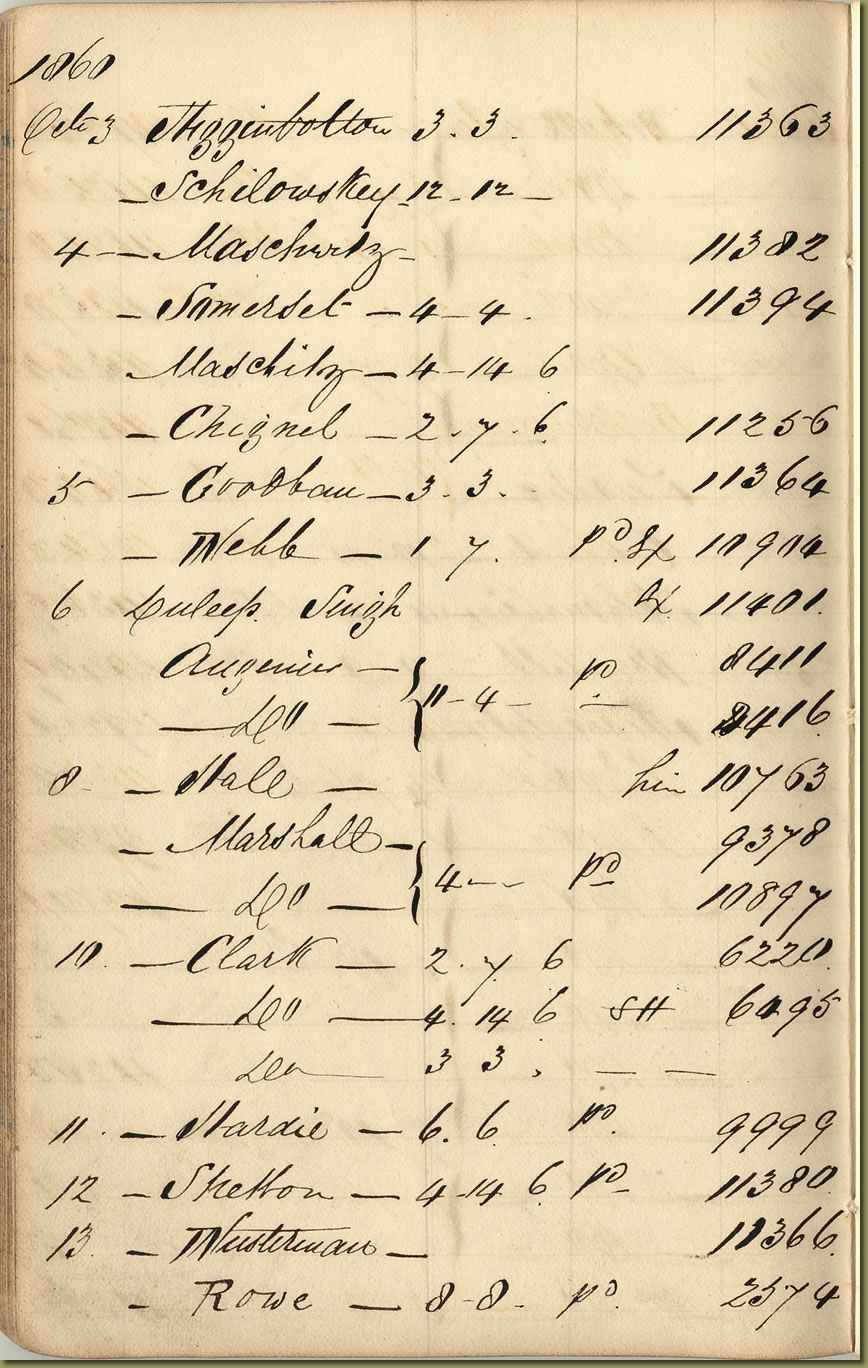 1860
Oct 3 Higginbotton 3. 3. 11363
– Schilowskey 12 – 12 –
4 – – Maschwitz – 11382
– Somerset – 4 – 4. 11394
Maschitz – 4 – 14 6
– Chignel – 2. 7. 6. 11256
5 – Goodban – 3. 3. 11364
– Webb – 1 7. pd. 10904
6 Duleep. Singh 11401.
Augenier – 8411
— Do – { 11 – 4 – pd 8416
8 – – Hale – 10763
– Marshall – 9378
— Do — { 4 – – pd 10897
10. – Clark – 2. 7 6 6220.
— Do — 4. 14 6 SH 6495
Do — 3 3. — —
11. – Hardie – 6. 6. pd. 9999
12 – Shelton – 4 – 14 6. pd – 11380.
13. – Wusterman – 11366.
– Rowe – 8 – 8 – pd. 2574